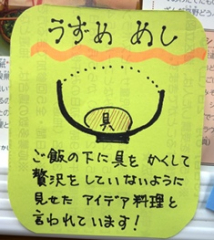 うずめ めし
具
ご飯の下に具をかくして
贅沢をしていないように
見せた アイデア料理と
言われています!